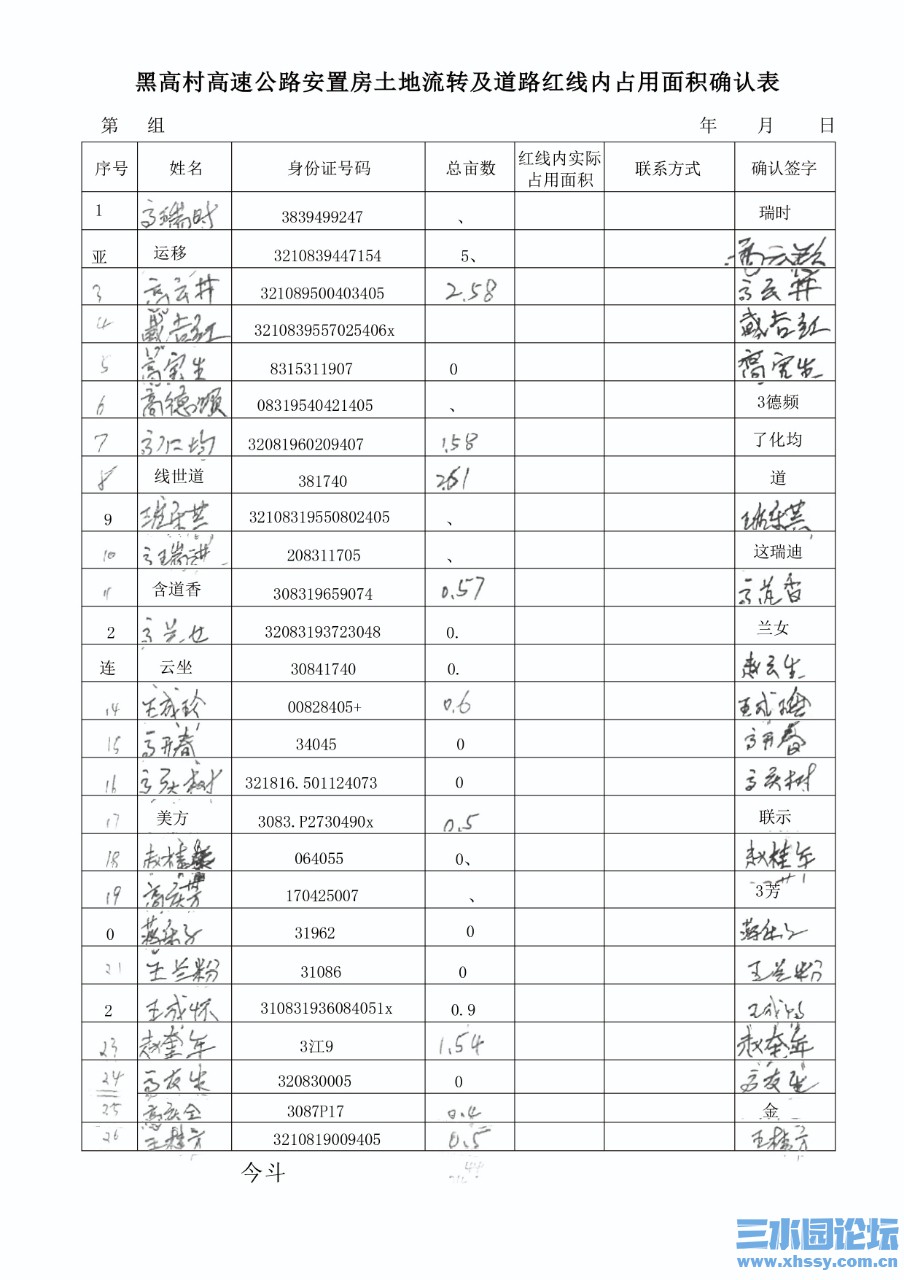 黑高村高速公路安置房土地流转及道路红线内占用面积确认表
第 组 年 月 日
序号 姓名 身份证号码 总亩数 红线内实际占用面积 联系方式 确认签字
1 高瑞时 3839499247 、 瑞时
亚 运移 3210839447154 5、
3 高云井 321089500403405 2.58 高云井
4 戴吉红 3210839557025406x 戴吉红
5 高宝生 8315311907 0 高宝生
6 高德频 08319540421405 、 3德频
7 高仁均 32081960209407 1.58 了化均
8 线世道 381740 2.61 道
9 32108319550802405 、
10 高瑞进 208311705 、 这瑞迪
11 含道香 308319659074 0.57 高范香
2 高兰女 32083193723048 0. 兰女
连 云坐 30841740 0. 赵云生
14 王成珍 00828405+ 0.6
15 高开春 34045 0 高开春
16 高庆树 321816.501124073 0 高庆树
17 美方 3083.P2730490x 0.5 联示
18 赵桂年 064055 0、 赵桂年
19 高庆芳 170425007 、 3芳
0 31962 0
21 王兰粉 31086 0 王兰粉
2 王成怀 310831936084051x 0.9
23 赵奎年 3江9 1.54 赵奎年
24 高友生 320830005 0 高友生
25 高庆全 3087P17 0.4 金
26 王桂芳 3210819009405 0.5 王桂芳
今斗
三水园论坛
www.xhssy.com.cn